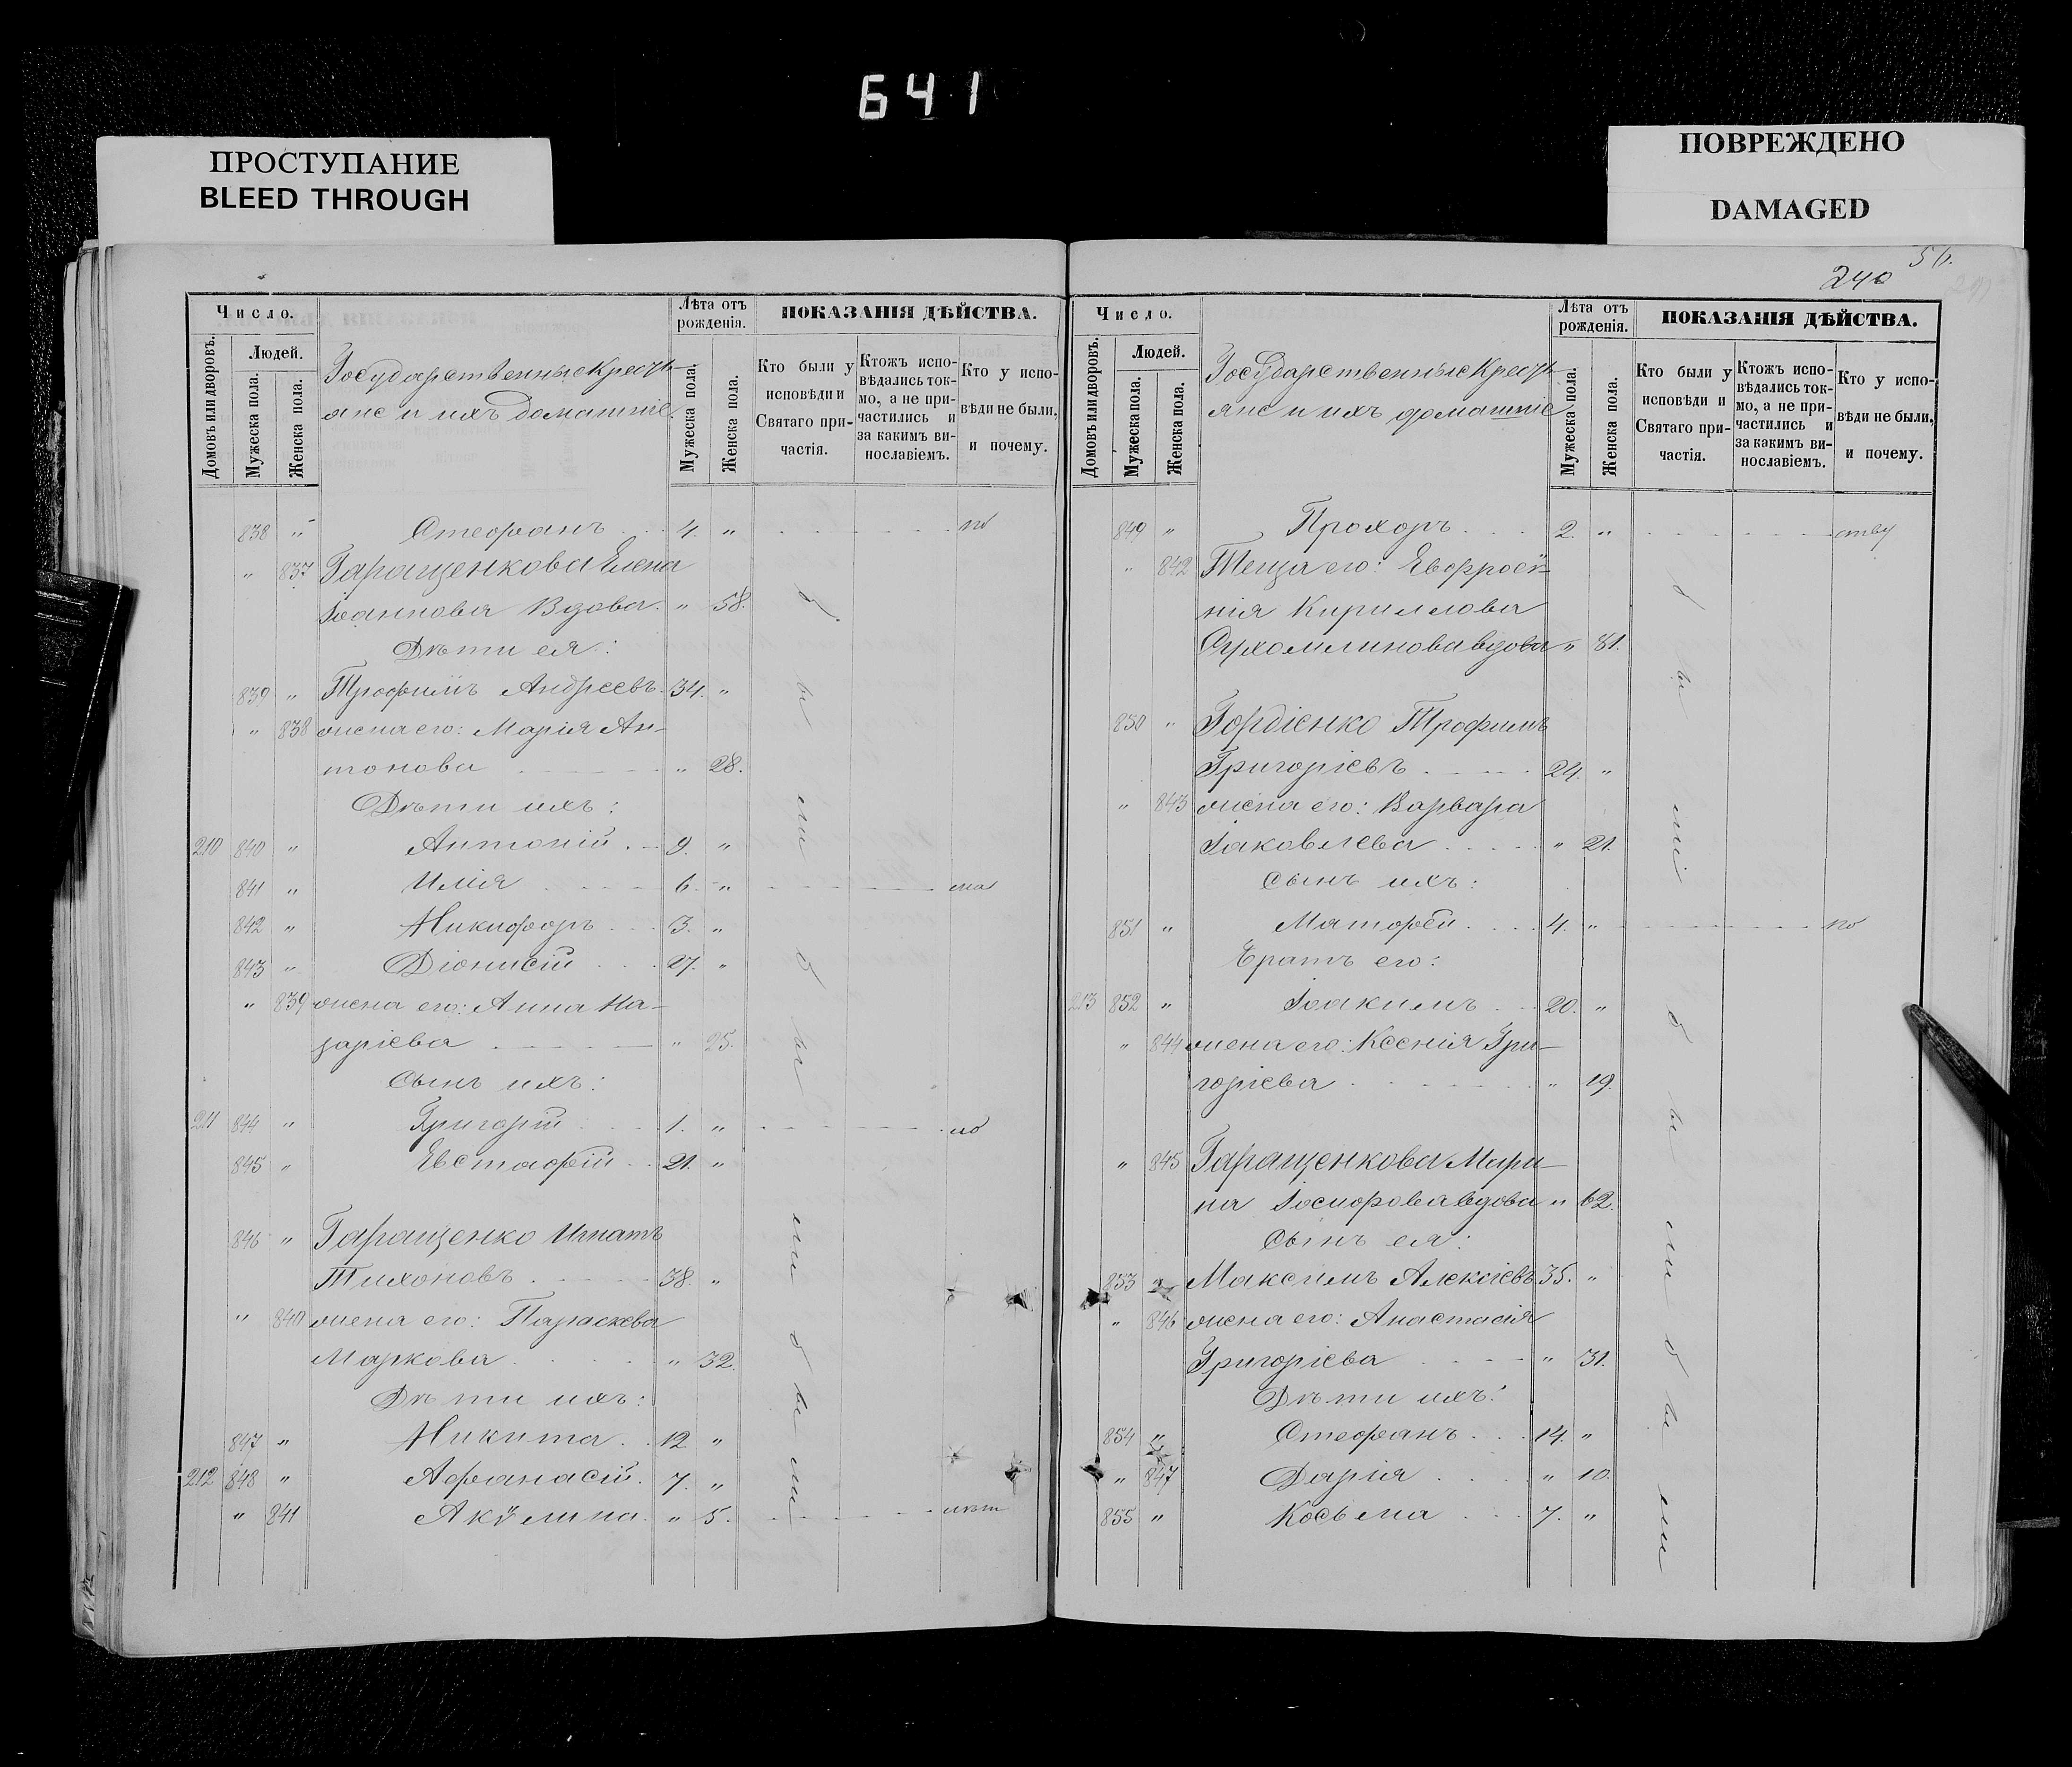 641
ПРОСТУПАНИЕ
BLEED THROUGH
ПОВРЕЖДЕНО
DAMAGED
Число.
Людей.
Домовъ или дворовъ.
Мужеска пола.
Женска пола.
Государственные Крестья-
яне и ихъ домашніе.
Лѣта отъ
рожденія.
Мужеска пола.
Женска пола.
ПОКАЗАНІЯ ДѢЙСТВА.
Кто были у
исповѣди и
Святаго при-
частія.
Ктожъ испо-
вѣдались ток-
мо, а не при-
частились и
за какимъ ви-
нославіемъ.
Кто у испо-
вѣди не были,
и почему.
838 " Стефанъ 4. " по
" 837 Гаращенкова Елена
Іоаннова Вдова. " 58.
Дѣти ея:
839 " Трофимъ Андреевъ. 34. "
" 838 жена его: Марія Ан-
тонова " 28.
Дѣти ихъ:
210 840 " Антоній 9. "
841 " Илія 6. " мал
842 " Никифоръ 3. "
843 " Діонисій 27. "
" 839 жена его: Анна На-
заріева " 25.
Сынъ ихъ:
211 844 " Григорій 1. "
845 " Евстафій 21. "
846 " Гаращенко Игнатъ
Тихоновъ 38. "
" 840 жена его: Параскева
Маркова " 32.
Дѣти ихъ:
847 " Никита 12 "
212 848 " Афанасій 7. "
" 841 Акулина " 5. лѣт
были
были
были
240
56.
Число.
Людей.
Домовъ или дворовъ.
Мужеска пола.
Женска пола.
Государственные Крестья-
яне и ихъ домашніе
Лѣта отъ
рожденія.
Мужеска пола.
Женска пола.
ПОКАЗАНІЯ ДѢЙСТВА.
Кто были у
исповѣди и
Святаго при-
частія.
Ктожъ испо-
вѣдались ток-
мо, а не при-
частились и
за какимъ ви-
нославіемъ.
Кто у испо-
вѣди не были,
и почему.
849 " Прохоръ 2. " ству
" 842 Теща его: Евфроси-
нія Кириллова
вдова " 81.
850 " Гордіенко Трофимъ
Григоріевъ 24. "
" 843 жена его: Варвара
Іаковлева " 21.
Сынъ ихъ:
851 " Матфей 4. " по
Братъ его:
213 852 " Іоакимъ 20. "
" 844 жена его: Ксенія Гри-
горіева " 19.
" 845 Гаращенкова Мари-
на Іосифова вдова " 62.
Сынъ ея:
853 " Максимъ Алексіевъ 35. "
" 846 жена его: Анастасія
Григоріева " 31.
Дѣти ихъ:
854 " Стефанъ 14. "
" 847 Дарія " 10.
855 " Косьма 7. "
были
были
были